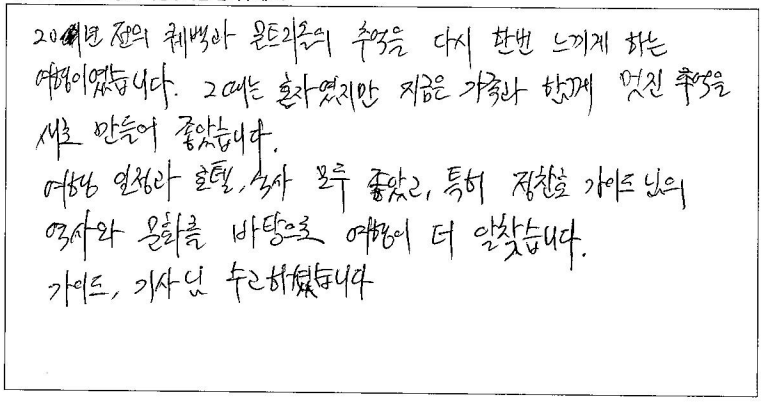 20년 전의 퀘백과 몬트리올의 추억을 다시 한번 느끼게 하는
여행이였습니다. 그때는 혼자였지만 지금은 가족과 함께 멋진 추억을
새로 만들어 좋았습니다.
여행 일정과 호텔, 식사 모두 좋았고, 특히 정찬호 가이드님의
역사와 문화를 바탕으로 여행이 더 알찼습니다.
가이드, 기사님 수고하셨습니다